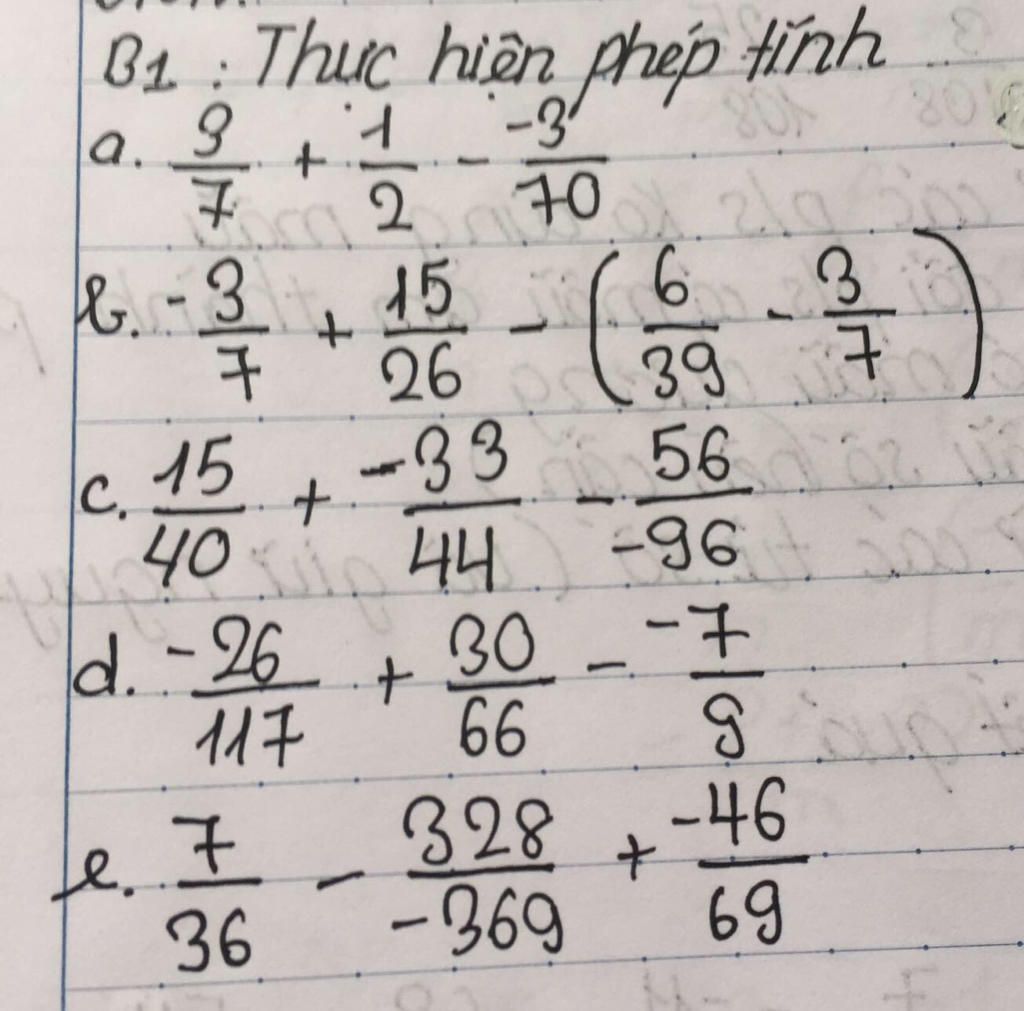 B1 : Thực hiện phép tính
a. 9/7 + 1/2 - -3/70
b. -3/7 + 15/26 - (6/39 - 3/7)
c. 15/40 + -33/44 - 56/-96
d. -26/117 + 30/66 - -7/9
e. 7/36 - 328/-369 + -46/69